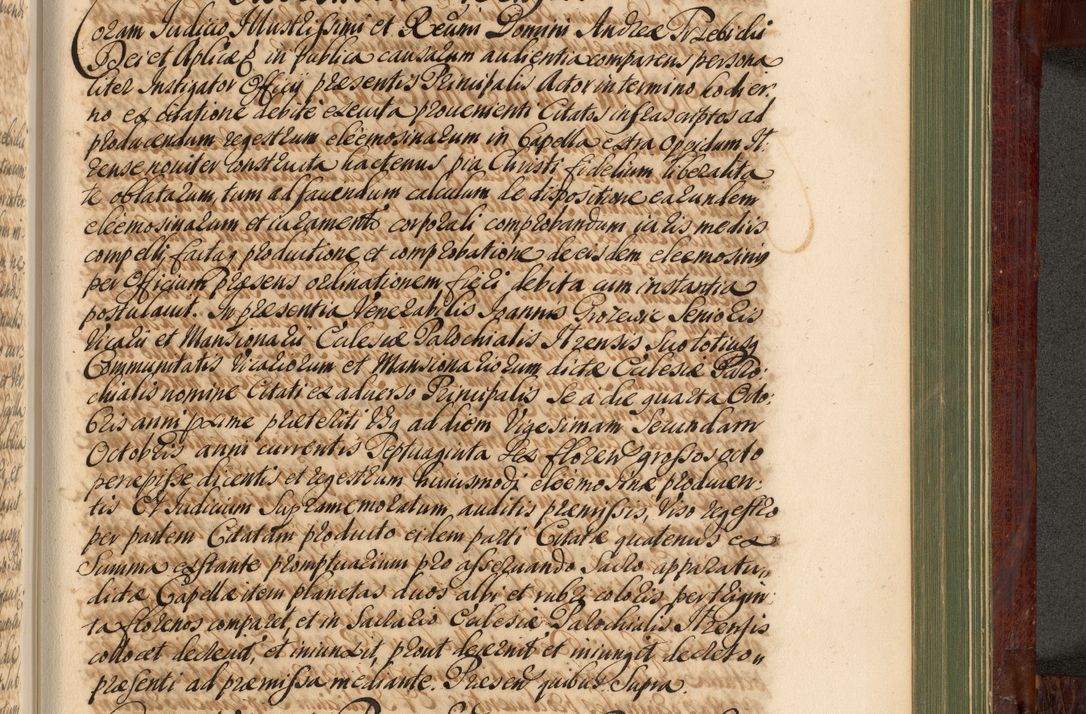 Coram Judicio Illustrissimi et Reverendissimi Domini Andreæ Trzebicki
Dei et Aplicæ & in publica causarum audientia comparens persona
liter Instigator Officij præsentis Principalis Actor in termino hodier
no ex citatione debite executa provenienti Citatos infrascriptos ad
producendum regestrum eleemosinarum in Capella extra Oppidum It
zense noviter constructa hactenus pia Christi fidelium liberalita
te oblatarum, tum ad faciendum calculum de dispositione earundem
eleemosinarum et iuramento corporali comprobandum iuris medijs
compelli, factaq productione et comprobatione de eisdem eleemosinis
per Officium præsens ordinationem fieri debita cum instantia
postulavit. In præsentia Venerabilis Joannis Senioris
Vicarij et Mansionarij Ecclesiæ Parochialis Itzensis Suo totiusq
Communitatis Vicariorum et Mansionariorum dictæ Ecclesiæ Paro-
chialis nomine Citati ex adverso Principalis Se a die quarta Octo:
bris anni prxme præteriti usq ad diem Vigesimam Secundam
Octobris anni currentis Septuaginta tres floren grossos octo
percepisse dicentis et regestrum huiusmodi eleemosinæ producen:
tis Et Judicium Supramemoratum, auditis præmissis, viso regestro
per partem Citatam producto eidem parti Citatæ quatenus ex
Summa exstante promptuarium pro asservando Sacro apparatu,,
dictæ Capellæ item planetas duos albi et rubri coloris per trigin:
ta florenos comparet, et in Sacrario Ecclesiæ Parochialis Itzensis
collocet decrevit, et iniunxit, prout decernit et iniungit decreto,,
præsenti ad præmissa mediante. Presen quibus Supra.